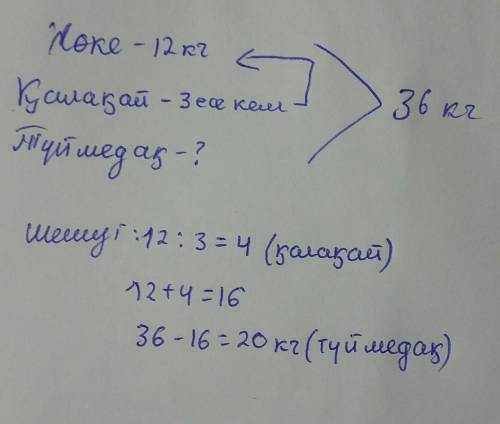 Жөке - 12 кг
Қалақай - 3 есе кем
36 кг
Түймедақ - ?
Шешуі: 12 : 3 = 4 (қалақай)
12 + 4 = 16
36 - 16 = 20 кг (түймедақ)